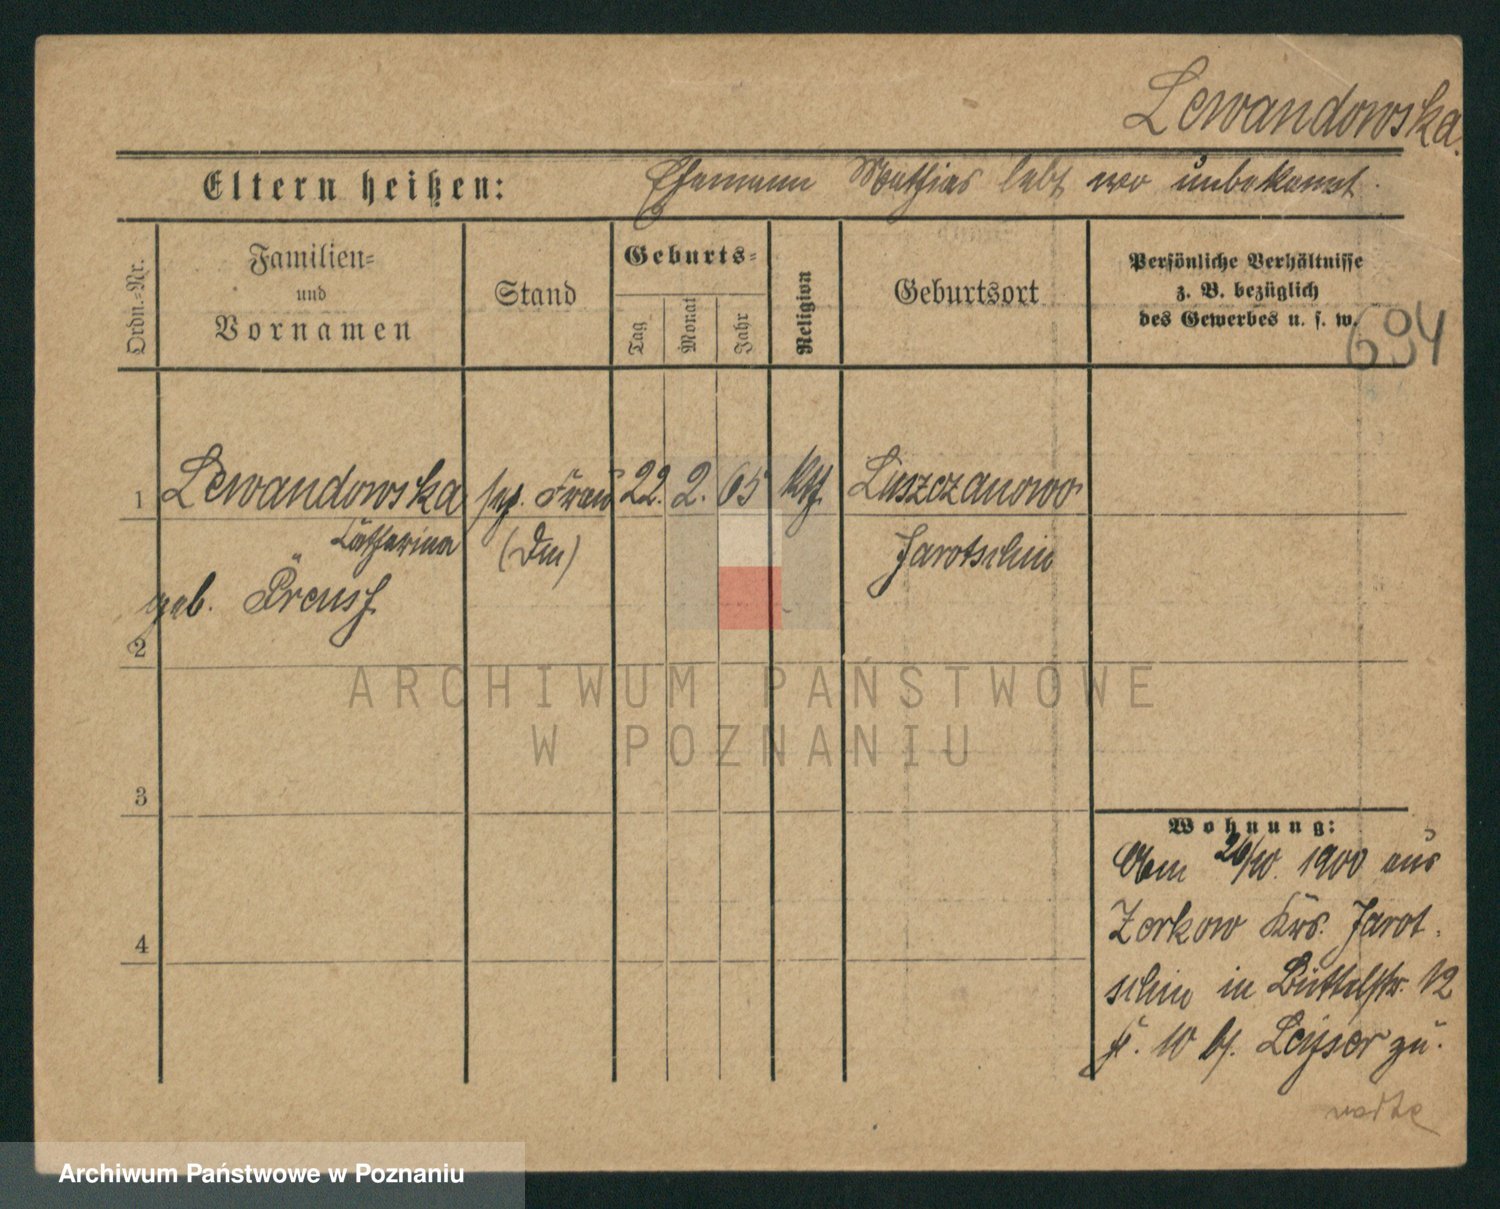 Lewandowska.
Eltern heißen: Ehemann Mathias lebt wo unbekannt.
Ordn.-Nr.
Familien-
und
Vornamen
Stand
Geburts-
Tag
Monat
Jahr
Religion
Geburtsort
Persönliche Verhältnisse
z. B. bezüglich
des Gewerbes u. s. w.
694
1 Lewandowska Frau 22. 2. 65 kth. Luszczanowo
Catharina Jarotschin
geb.
2
3
4
Wohnung:
Am 26/10. 1900 aus
Zerkow Krs. Jarot-
schin in Büttelstr. 12
10 Leyser zu.
ARCHIWUM PAŃSTWOWE
W POZNANIU
Archiwum Państwowe w Poznaniu